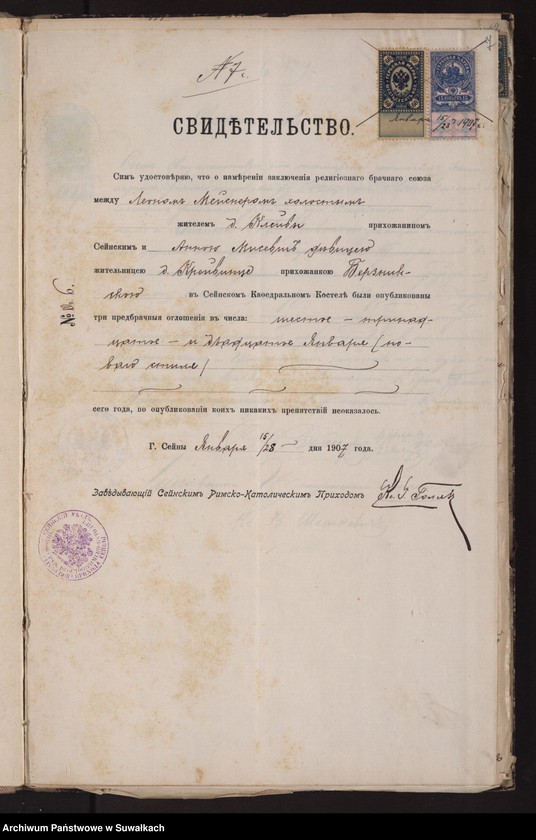 № 7.
7
Января 15/28 1907 г.
СВИДѢТЕЛЬСТВО.
Симъ удостовѣряю, что о намѣреніи заключенія религіознаго брачнаго союза
между Леономъ Мейснеромъ холостымъ
жителемъ д. Клейвы прихожаниномъ
Сейнскимъ и Анною Мисевичъ дѣвицею
жительницею д. Крейвинце прихожанкою Бержник-
скою въ Сейнскомъ Каѳедральномъ Костелѣ были опубликованы
три предбрачныя оглошенія въ числа: шестое – тринад-
цатое – и двадцатое Января (но-
ваго стиля)
сего года, по опубликованіи коихъ никакихъ препятствій неоказалось.
Г. Сейны Января 15/28 – дня 1907 года.
Завѣдывающій Сейнскимъ Римско-Католическимъ Приходомъ
№ 6.
Archiwum Państwowe w Suwałkach